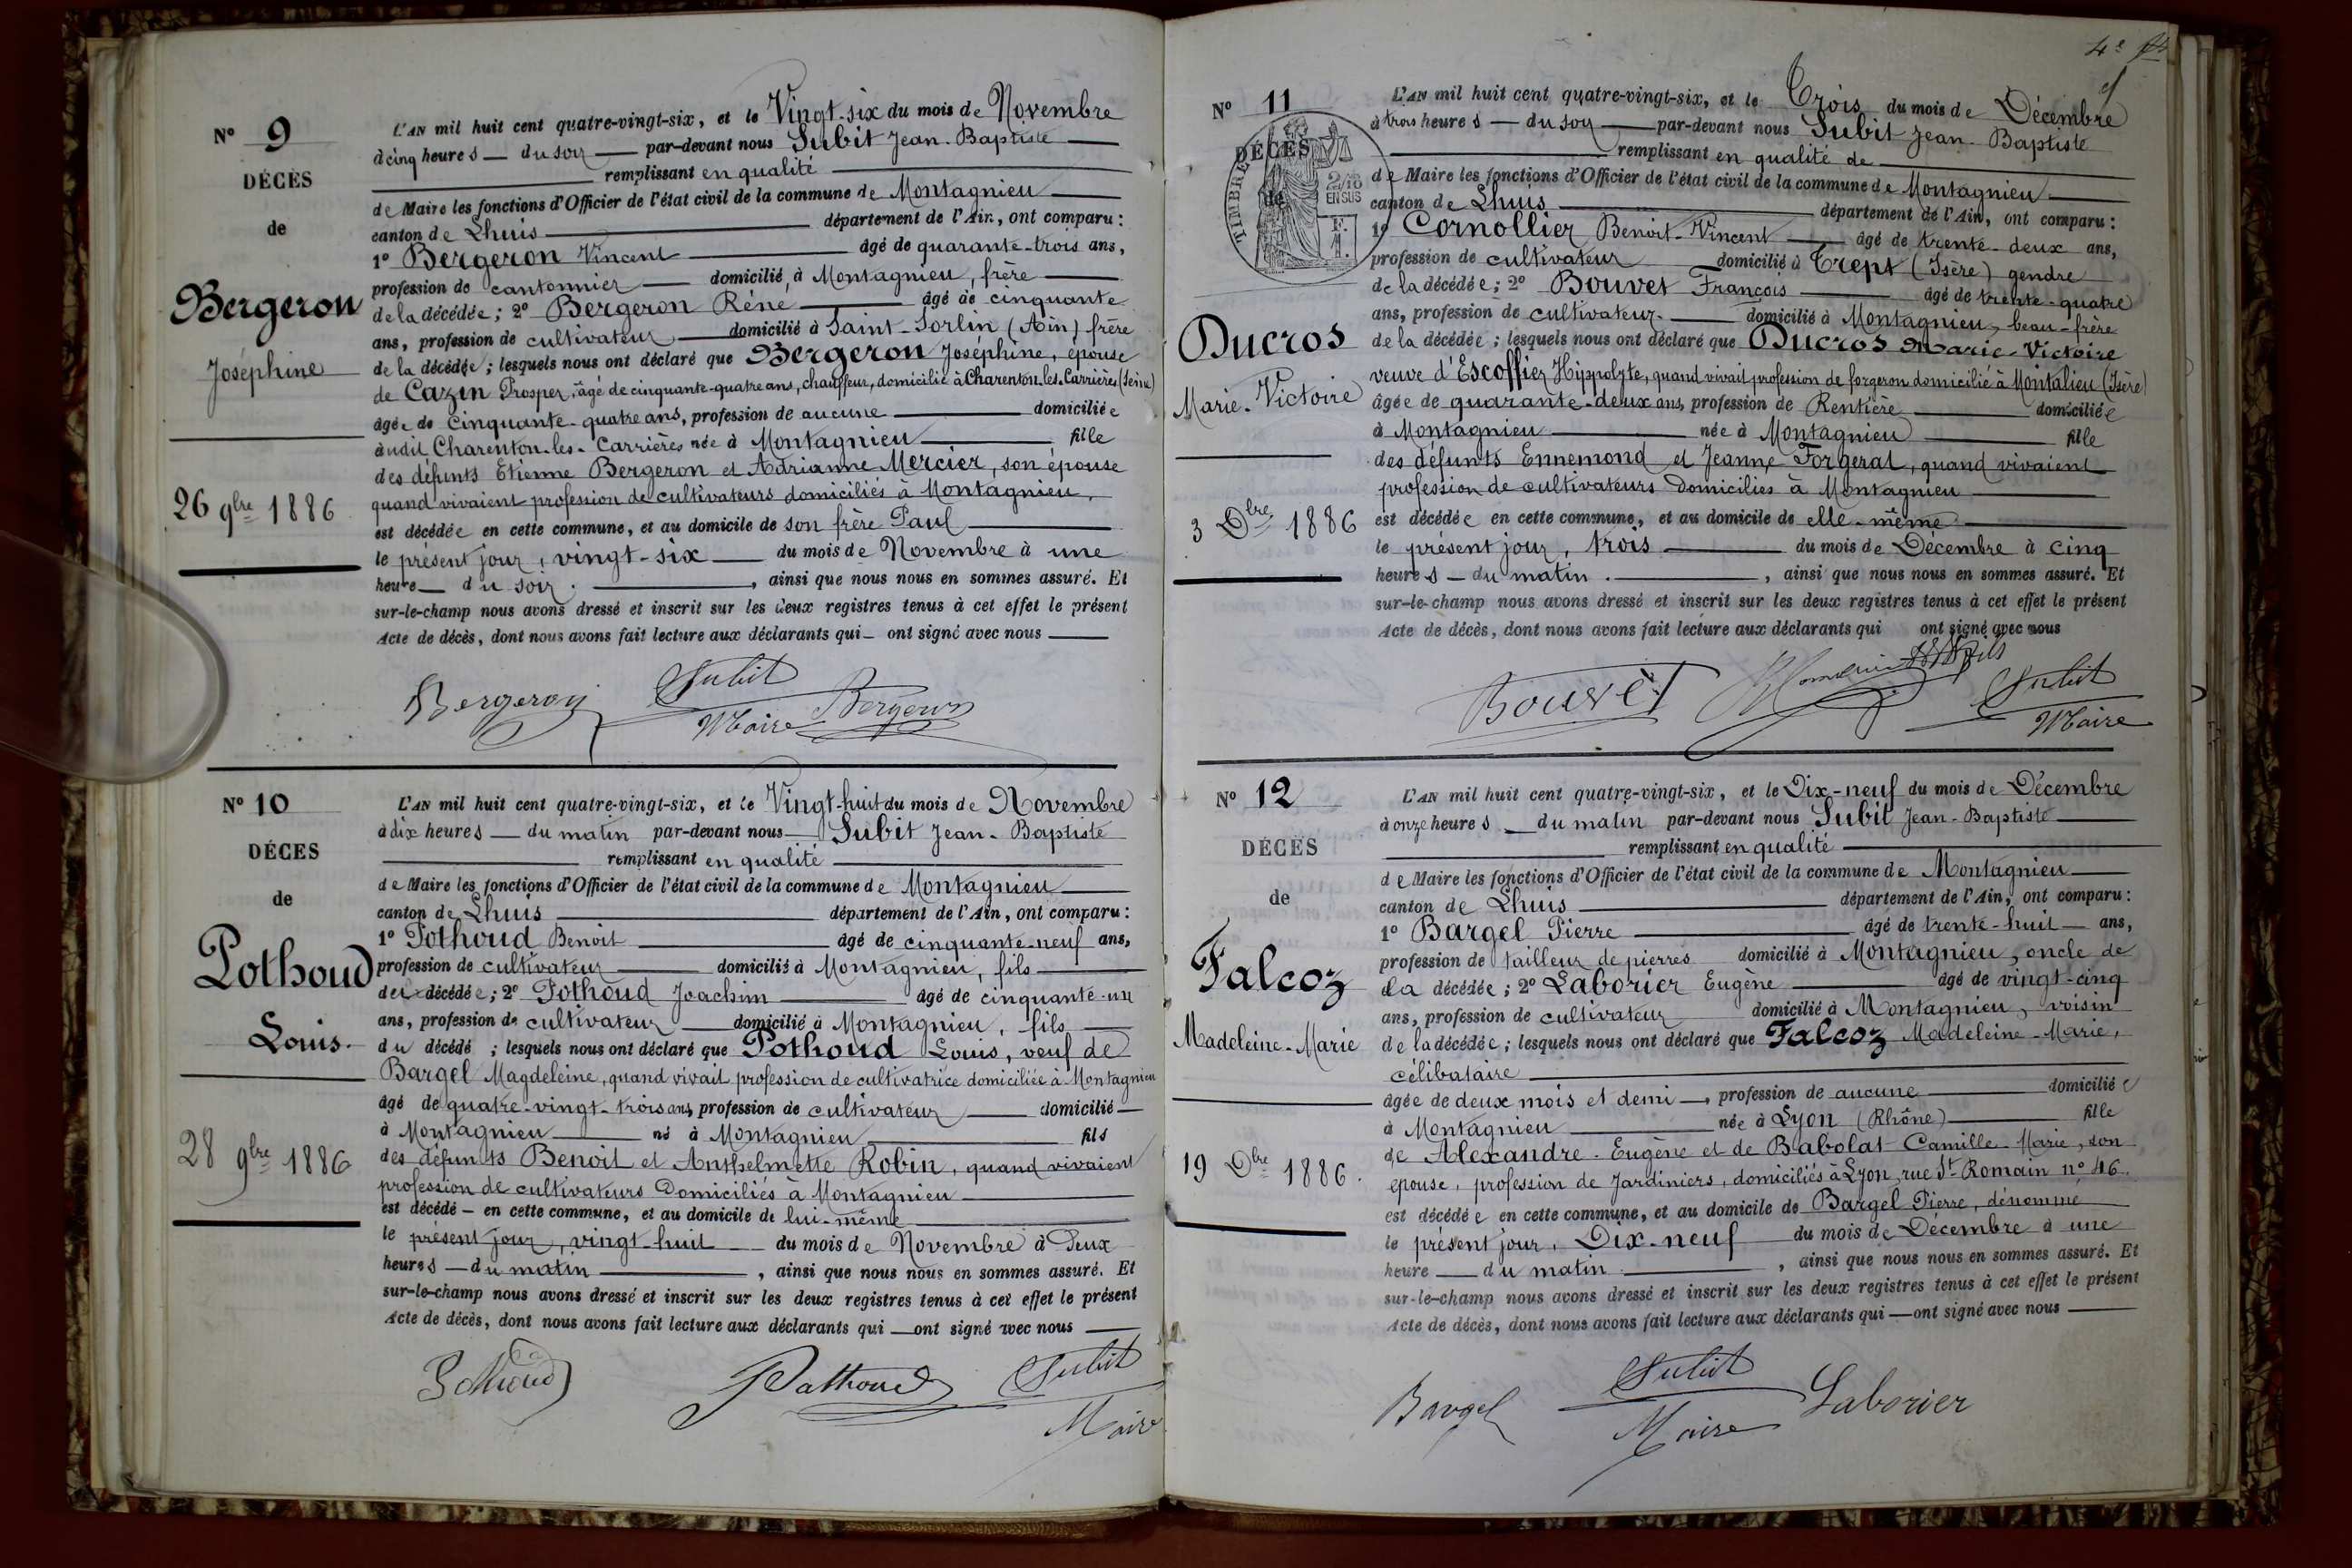 N° 9
DÉCÈS
de
Bergeron
Joséphine
26 9bre 1886
L'AN mil huit cent quatre-vingt-six, et le Vingt-six du mois de Novembre
à cinq heures — du soir — par-devant nous Subit Jean-Baptiste —
remplissant en qualité
de Maire les fonctions d'Officier de l'état civil de la commune de Montagnieu
canton de Lhuis — département de l'Ain, ont comparu :
1° Bergeron Vincent — âgé de quarante-trois ans,
profession de cantonnier — domicilié à Montagnieu, frère —
de la décédée ; 2° Bergeron Réné — âgé de cinquante
ans, profession de cultivateur — domicilié à Saint-Sorlin (Ain) frère
de la décédée ; lesquels nous ont déclaré que Bergeron Joséphine, épouse
de Cazin Prosper, âgé de cinquante-quatre ans, chauffeur, domicilié à Charenton-les-Carrières (Seine)
âgée de cinquante-quatre ans, profession de aucune — domiciliée
audit Charenton-les-Carrières née à Montagnieu — fille
des défunts Etienne Bergeron et Adrianne Mercier, son épouse
quand vivaient profession de cultivateurs domiciliés à Montagnieu,
est décédée en cette commune, et au domicile de son frère Paul —
le présent jour, vingt-six — du mois de Novembre à une
heure — du soir. — , ainsi que nous nous en sommes assuré. Et
sur-le-champ nous avons dressé et inscrit sur les deux registres tenus à cet effet le présent
Acte de décès, dont nous avons fait lecture aux déclarants qui — ont signé avec nous —
Bergeron Subit Bergeron
Maire
N° 10
DÉCES
de
Pothoud
Louis.
28 9bre 1886
L'AN mil huit cent quatre-vingt-six, et le Vingt-huit du mois de Novembre
à dix heures — du matin par-devant nous — Subit Jean-Baptiste
remplissant en qualité
de Maire les fonctions d'Officier de l'état civil de la commune de Montagnieu
canton de Lhuis — département de l'Ain, ont comparu :
1° Pothoud Benoit — âgé de cinquante-neuf ans,
profession de cultivateur — domicilié à Montagnieu, fils —
du décédé ; 2° Pothoud Joachim — âgé de cinquante-un
ans, profession de cultivateur — domicilié à Montagnieu, fils —
du décédé ; lesquels nous ont déclaré que Pothoud Louis, veuf de
Bargel Magdeleine, quand vivait profession de cultivatrice domiciliée à Montagnieu
âgé de quatre-vingt-trois ans, profession de cultivateur — domicilié —
à Montagnieu — né à Montagnieu — fils
des défunts Benoit et Anthelmette Robin, quand vivaient
profession de cultivateurs Domiciliés à Montagnieu —
est décédé — en cette commune, et au domicile de lui-même —
le présent jour, vingt-huit — du mois de Novembre à Deux
heures — du matin — , ainsi que nous nous en sommes assuré. Et
sur-le-champ nous avons dressé et inscrit sur les deux registres tenus à cet effet le présent
Acte de décès, dont nous avons fait lecture aux déclarants qui — ont signé avec nous —
Pothoud Pothoud Subit
Maire
4e
N° 11
DÉCÈS
de
TIMBRE
2/10
EN SUS
Ducros
Marie-Victoire
3 Dbre 1886
L'AN mil huit cent quatre-vingt-six, et le Trois du mois de Décembre
à trois heures — du soir — par-devant nous Subit Jean-Baptiste
remplissant en qualité de —
de Maire les fonctions d'Officier de l'état civil de la commune de Montagnieu —
canton de Lhuis — département de l'Ain, ont comparu :
1° Cornollier Benoit-Vincent — âgé de trente-deux ans,
profession de cultivateur — domicilié à Trept (Isère) gendre
de la décédée ; 2° Bouvet François — âgé de trente-quatre
ans, profession de cultivateur — domicilié à Montagnieu, beau-frère
de la décédée ; lesquels nous ont déclaré que Ducros Marie-Victoire
veuve d'Escoffier Hyppolyte, quand vivait profession de forgeron domicilié à Montalieu (Isère)
âgée de quarante-deux ans, profession de Rentière — domiciliée
à Montagnieu — née à Montagnieu — fille
des défunts Ennemond et Jeanne Forgerat, quand vivaient
profession de cultivateurs Domiciliés à Montagnieu —
est décédée en cette commune, et au domicile de elle-même —
le présent jour, trois — du mois de Décembre à cinq
heures — du matin. — , ainsi que nous nous en sommes assuré. Et
sur-le-champ nous avons dressé et inscrit sur les deux registres tenus à cet effet le présent
Acte de décès, dont nous avons fait lecture aux déclarants qui ont signé avec nous
Bouvet Subit
Maire
N° 12
DÉCÈS
de
Falcoz
Madeleine-Marie
19 Dbre 1886.
L'AN mil huit cent quatre-vingt-six, et le Dix-neuf du mois de Décembre
à onze heures — du matin par-devant nous Subit Jean-Baptiste —
remplissant en qualité —
de Maire les fonctions d'Officier de l'état civil de la commune de Montagnieu —
canton de Lhuis — département de l'Ain, ont comparu :
1° Bargel Pierre — âgé de trente-huit — ans,
profession de tailleur de pierres domicilié à Montagnieu, oncle de
la décédée ; 2° Laborier Eugène — âgé de vingt-cinq
ans, profession de cultivateur domicilié à Montagnieu, voisin
de la décédée ; lesquels nous ont déclaré que Falcoz Madeleine-Marie,
célibataire —
âgée de deux mois et demi —, profession de aucune — domiciliée
à Montagnieu — née à Lyon (Rhône) — fille
de Alexandre-Eugène et de Babolat Camille-Marie, son
épouse, profession de Jardiniers, domiciliés à Lyon, rue St-Romain n° 46.
est décédée en cette commune, et au domicile de Bargel Pierre, dénommé
le présent jour, Dix-neuf du mois de Décembre à une
heure — du matin. — , ainsi que nous nous en sommes assuré. Et
sur-le-champ nous avons dressé et inscrit sur les deux registres tenus à cet effet le présent
Acte de décès, dont nous avons fait lecture aux déclarants qui — ont signé avec nous —
Bargel Subit Laborier
Maire